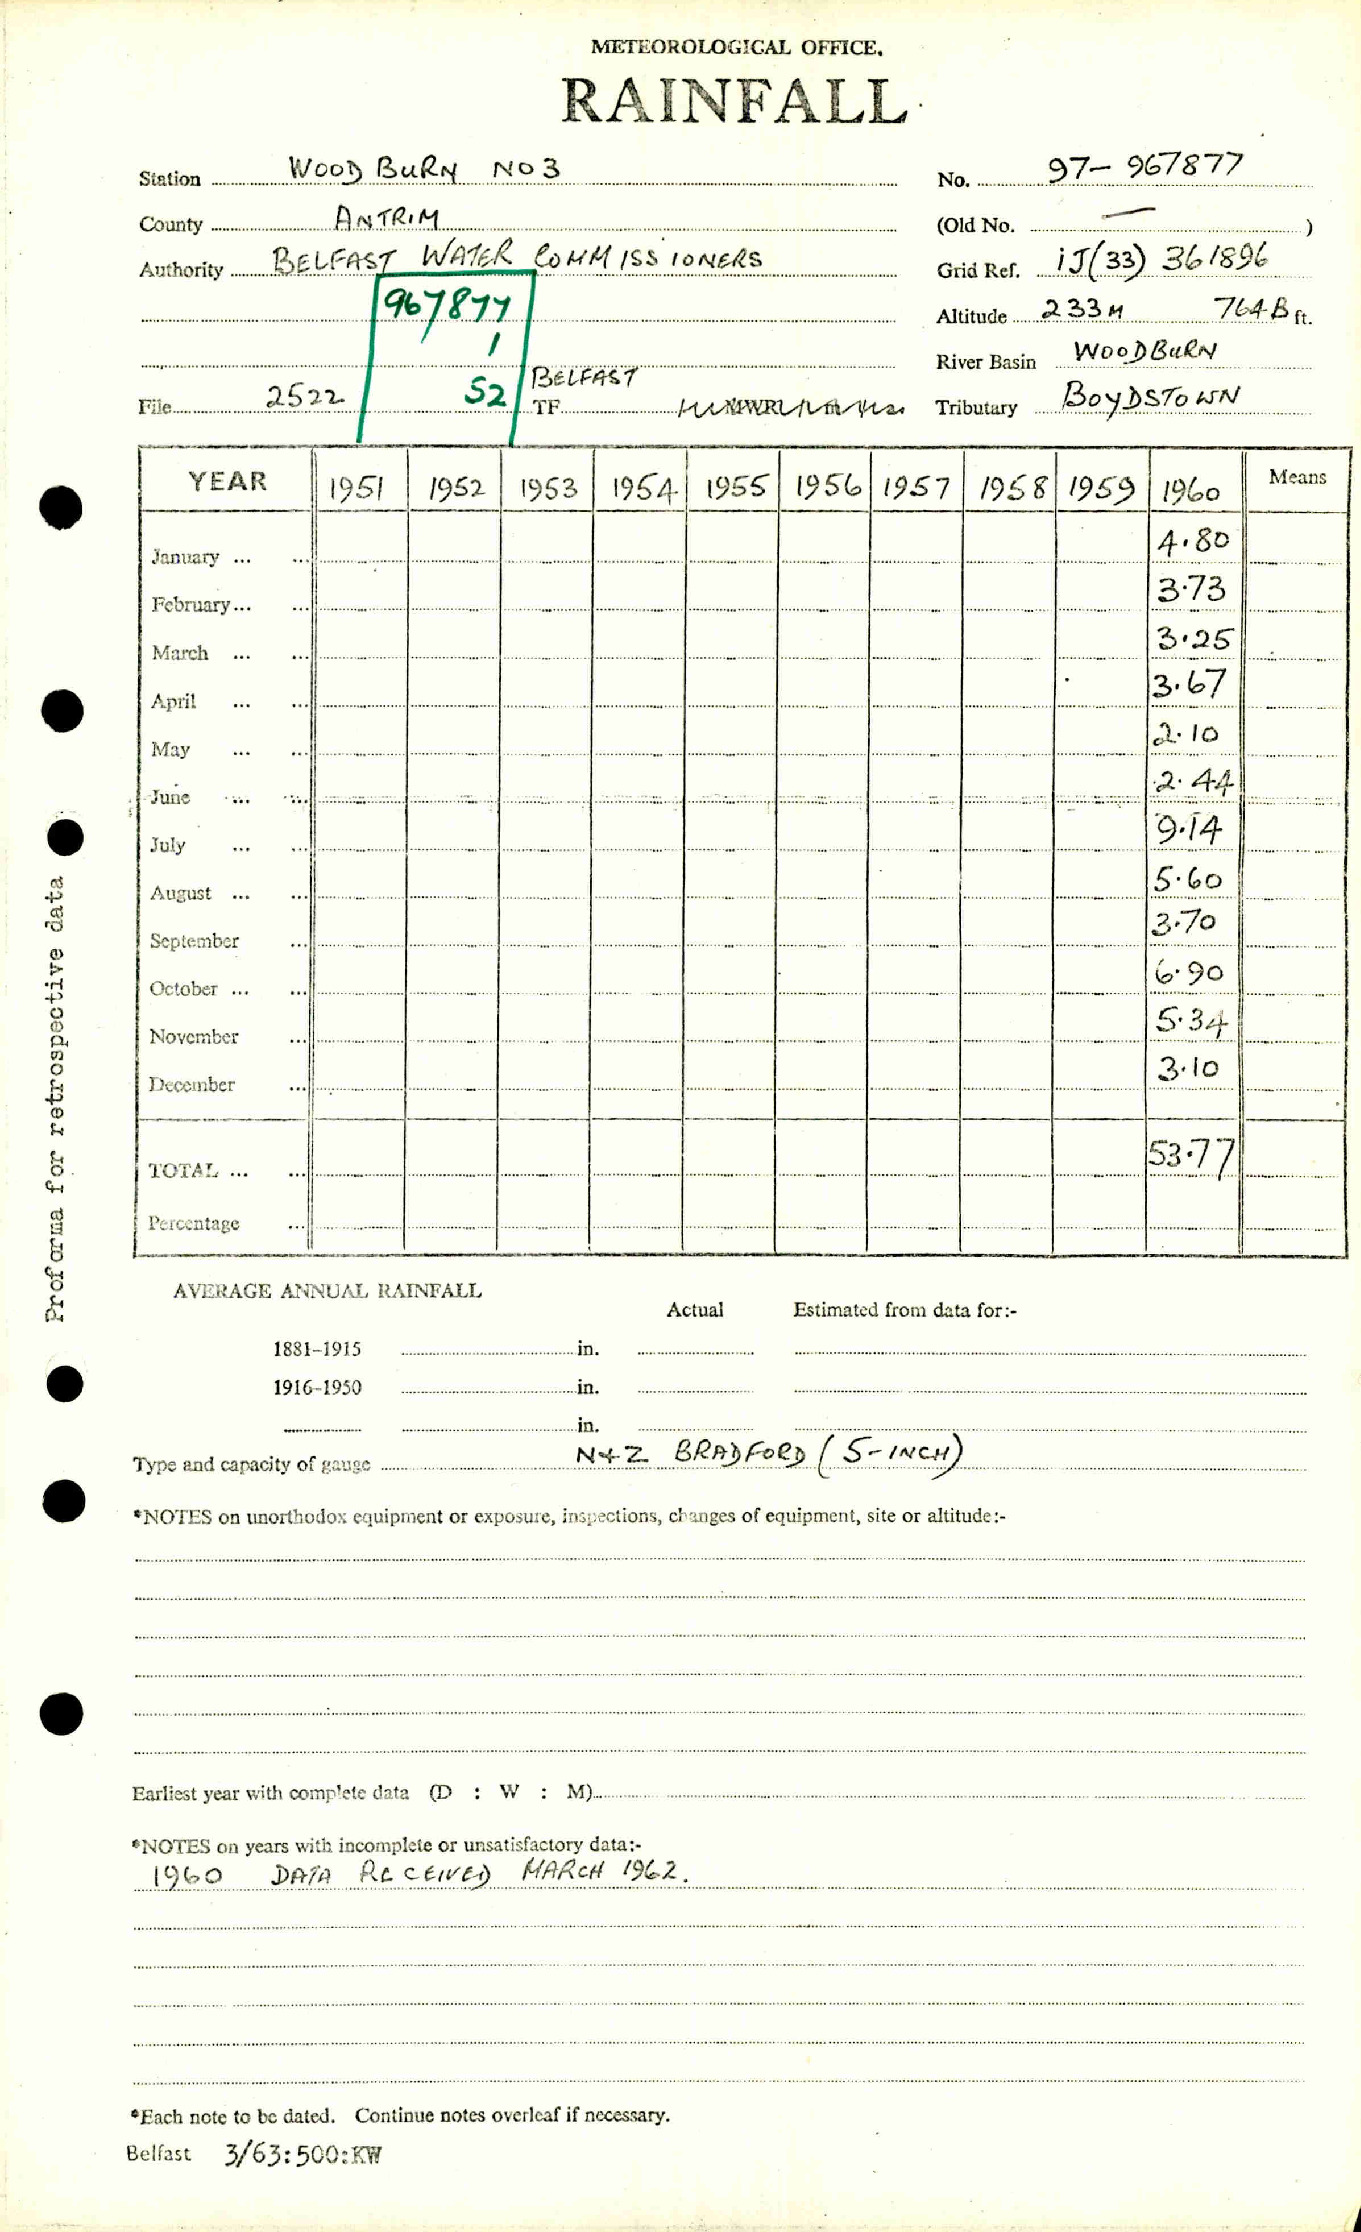 METEOROLOGICAL OFFICE.
RAINFALL
Station WOODBURN NO 3 No. 97- 967877
County ANTRIM (Old No. — )
Authority BELFAST WATER COMMISSIONERS Grid Ref. IJ(33) 361896
967877 Altitude 233M 764B ft.
1 River Basin WOODBURN
File 2522 52 BELFAST TF Tributary BOYDSTOWN
YEAR 1951 1952 1953 1954 1955 1956 1957 1958 1959 1960 Means
January ... ... 4.80
February ... ... 3.73
March ... ... 3.25
April ... ... 3.67
May ... ... 2.10
June ... ... 2.44
July ... ... 9.14
August ... ... 5.60
September ... 3.70
October ... ... 6.90
November ... 5.34
December ... 3.10
TOTAL ... ... 53.77
Percentage ...
Proforma for retrospective data
AVERAGE ANNUAL RAINFALL
Actual Estimated from data for:-
1881-1915 in.
1916-1950 in.
in.
Type and capacity of gauge N+Z BRADFORD (5-INCH)
*NOTES on unorthodox equipment or exposure, inspections, changes of equipment, site or altitude:-
Earliest year with complete data (D : W : M)
*NOTES on years with incomplete or unsatisfactory data:-
1960 DATA RECEIVED MARCH 1962.
*Each note to be dated. Continue notes overleaf if necessary.
Belfast 3/63:500:KW